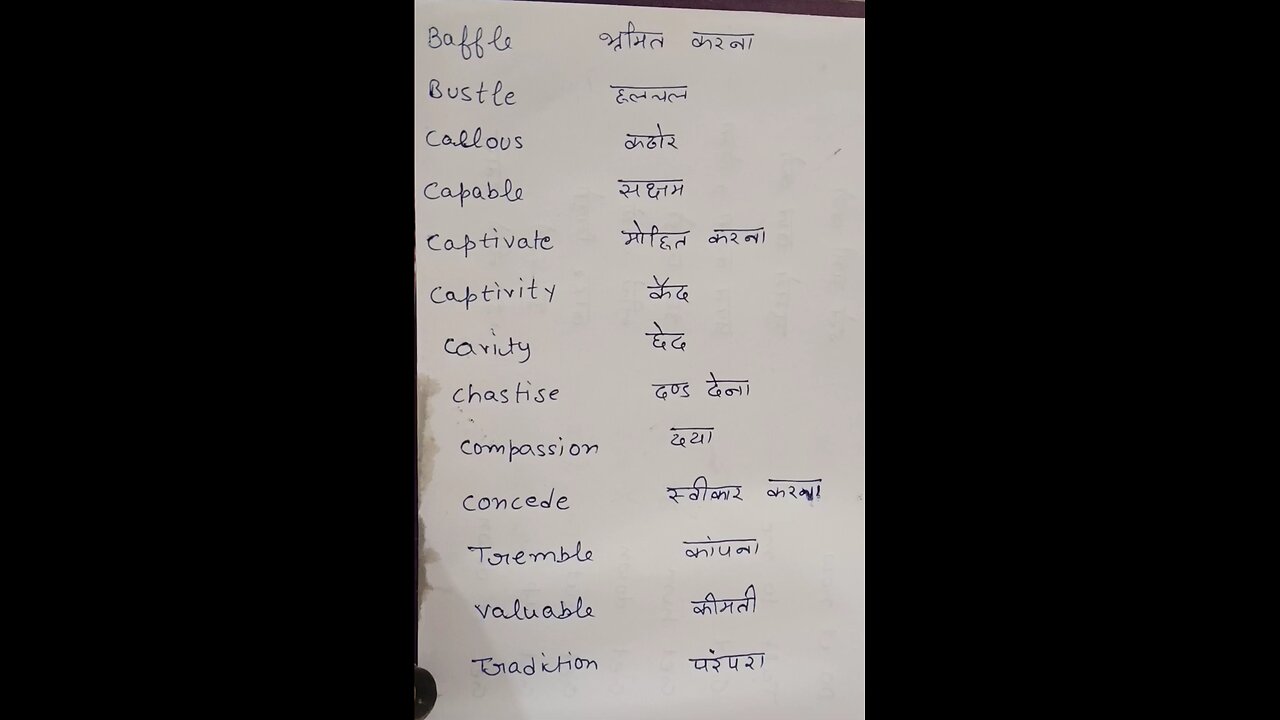 Baffle भ्रमित करना
Bustle हलचल
Callous कठोर
Capable सक्षम
Captivate मोहित करना
Captivity कैद
Cavity छेद
Chastise दण्ड देना
Compassion दया
Concede स्वीकार करना
Tremble कांपना
Valuable कीमती
Tradition परंपरा